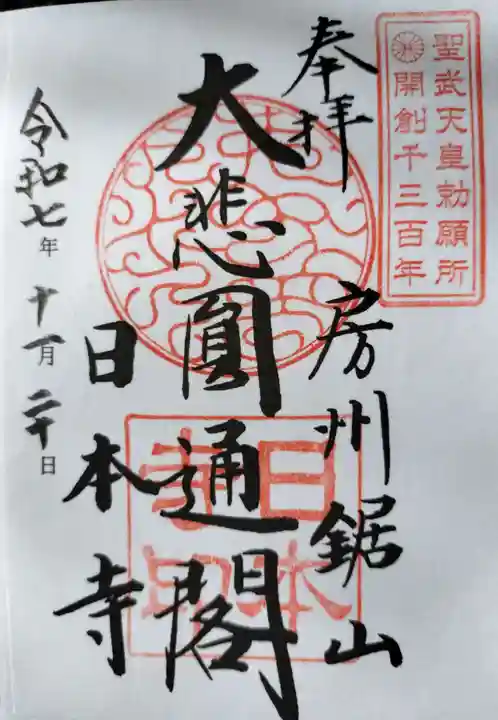 聖武天皇勅願所
開創千三百年
奉拝
房州鋸山
大悲圓通閣
日本寺
令和七年十一月二十日
日本寺印